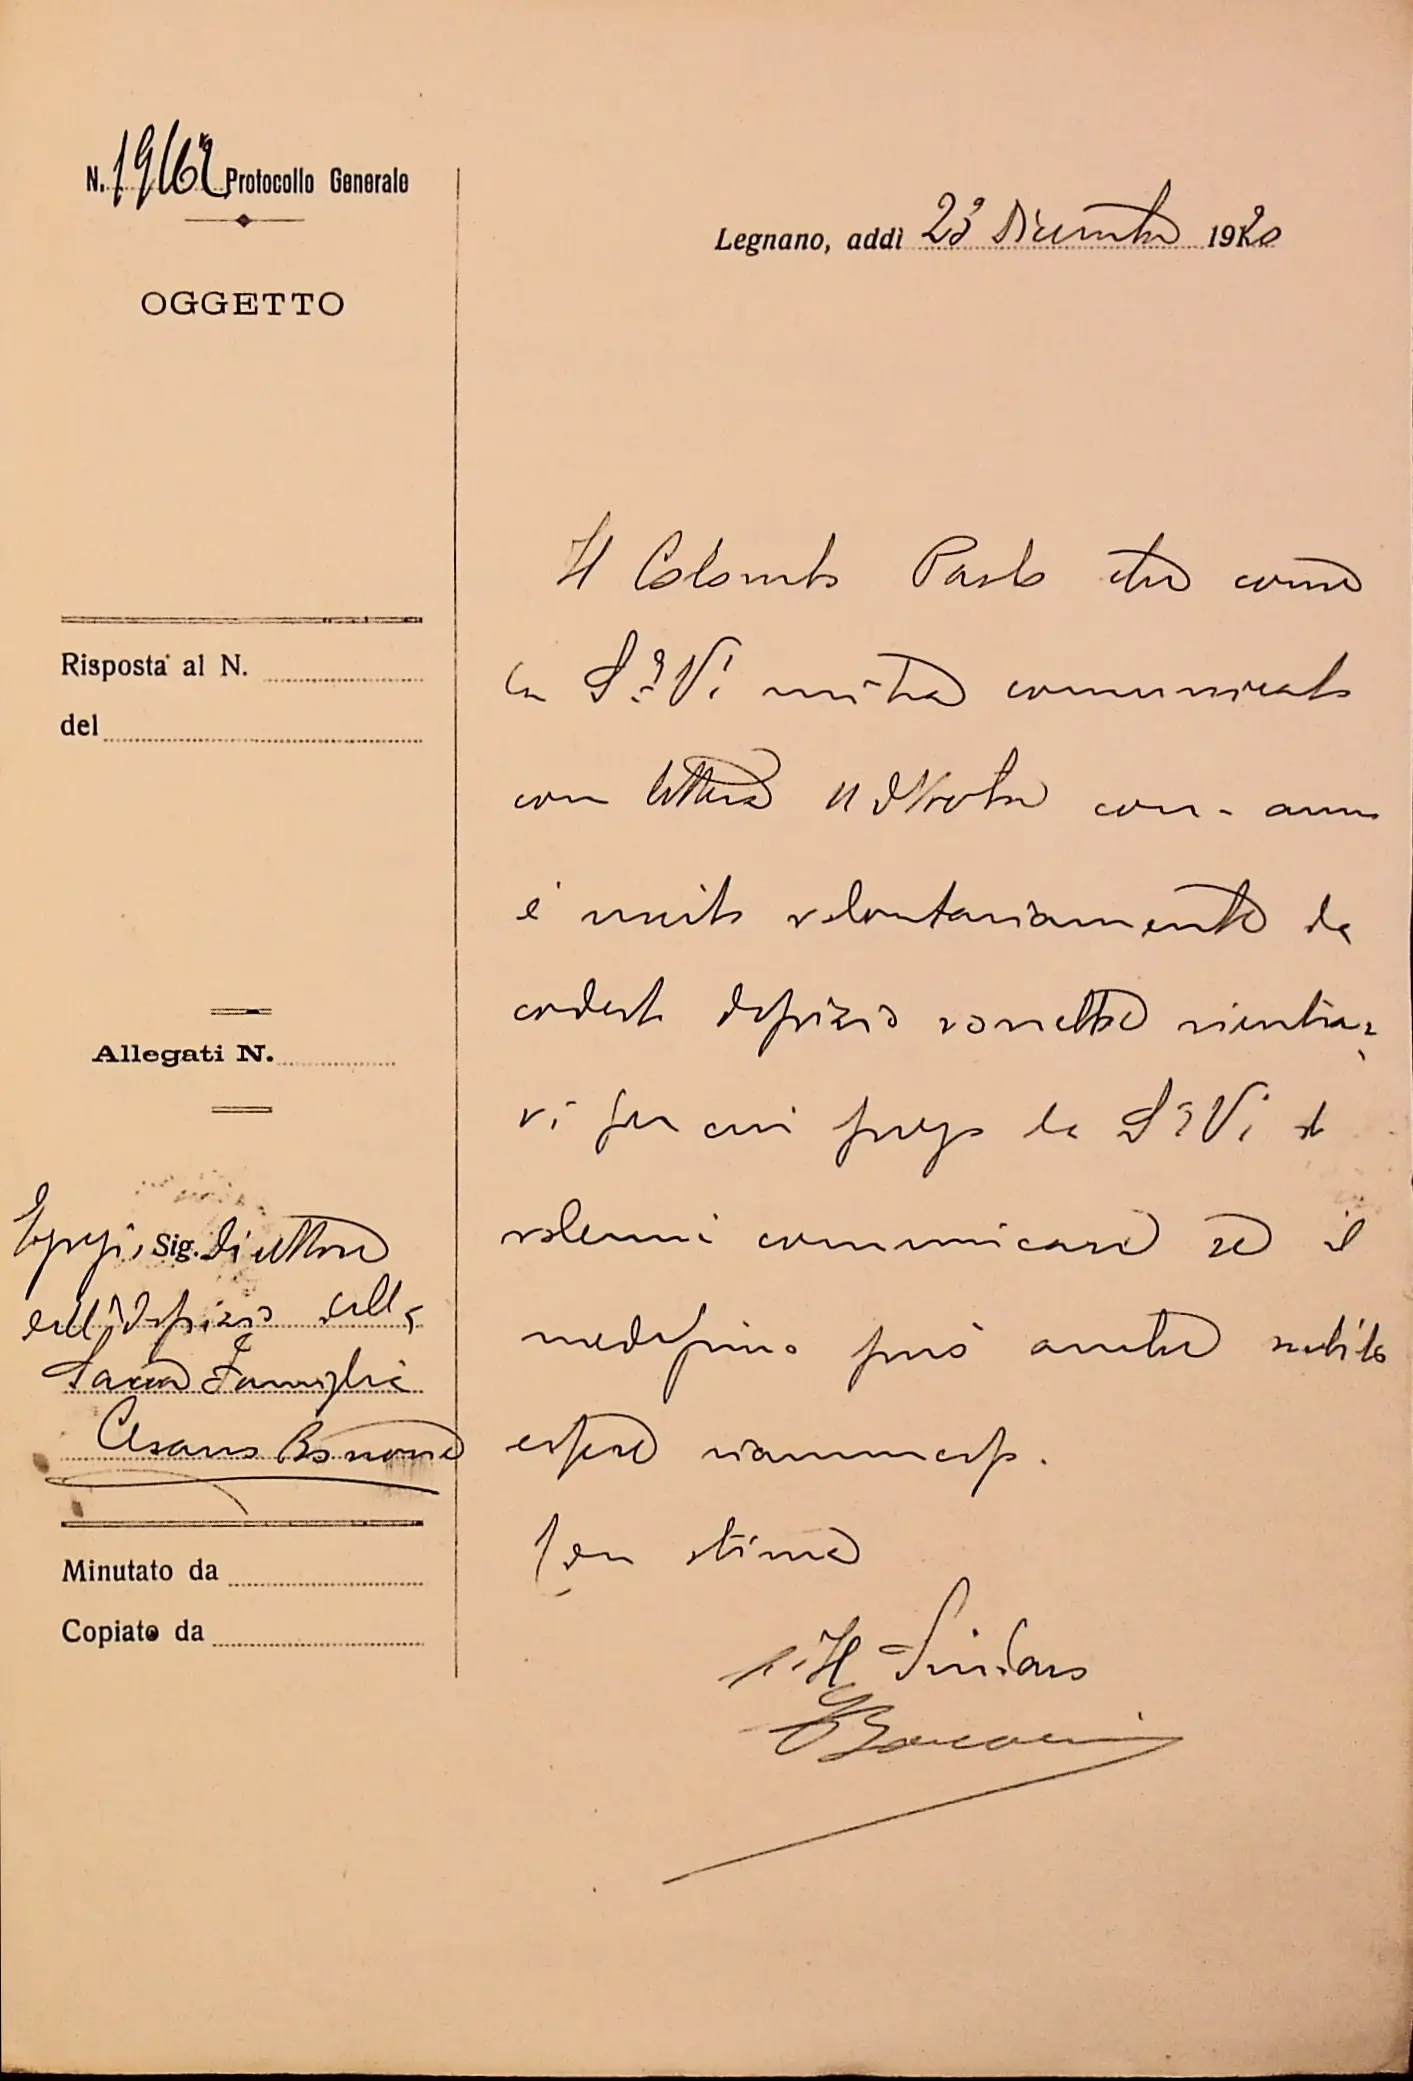 N. 19162 Protocollo Generale
Legnano, addì 23 Dicembre 1920
OGGETTO
Risposta al N.
del
Allegati N.
Egregio Sig. Direttore
dell'Ospizio della
Sacra Famiglia
Cesano Boscone
Minutato da
Copiato da
Il Colombo Paolo che come
la S. V. mi ha comunicato
con lettera 11 Ottobre corr. anno
è uscito volontariamente da
codesto Ospizio vorrebbe rientrar
vi per cui prego la S. V. a
volermi comunicare se il
medesimo può anche subito
essere riammesso.
Con stima
p. Il Sindaco